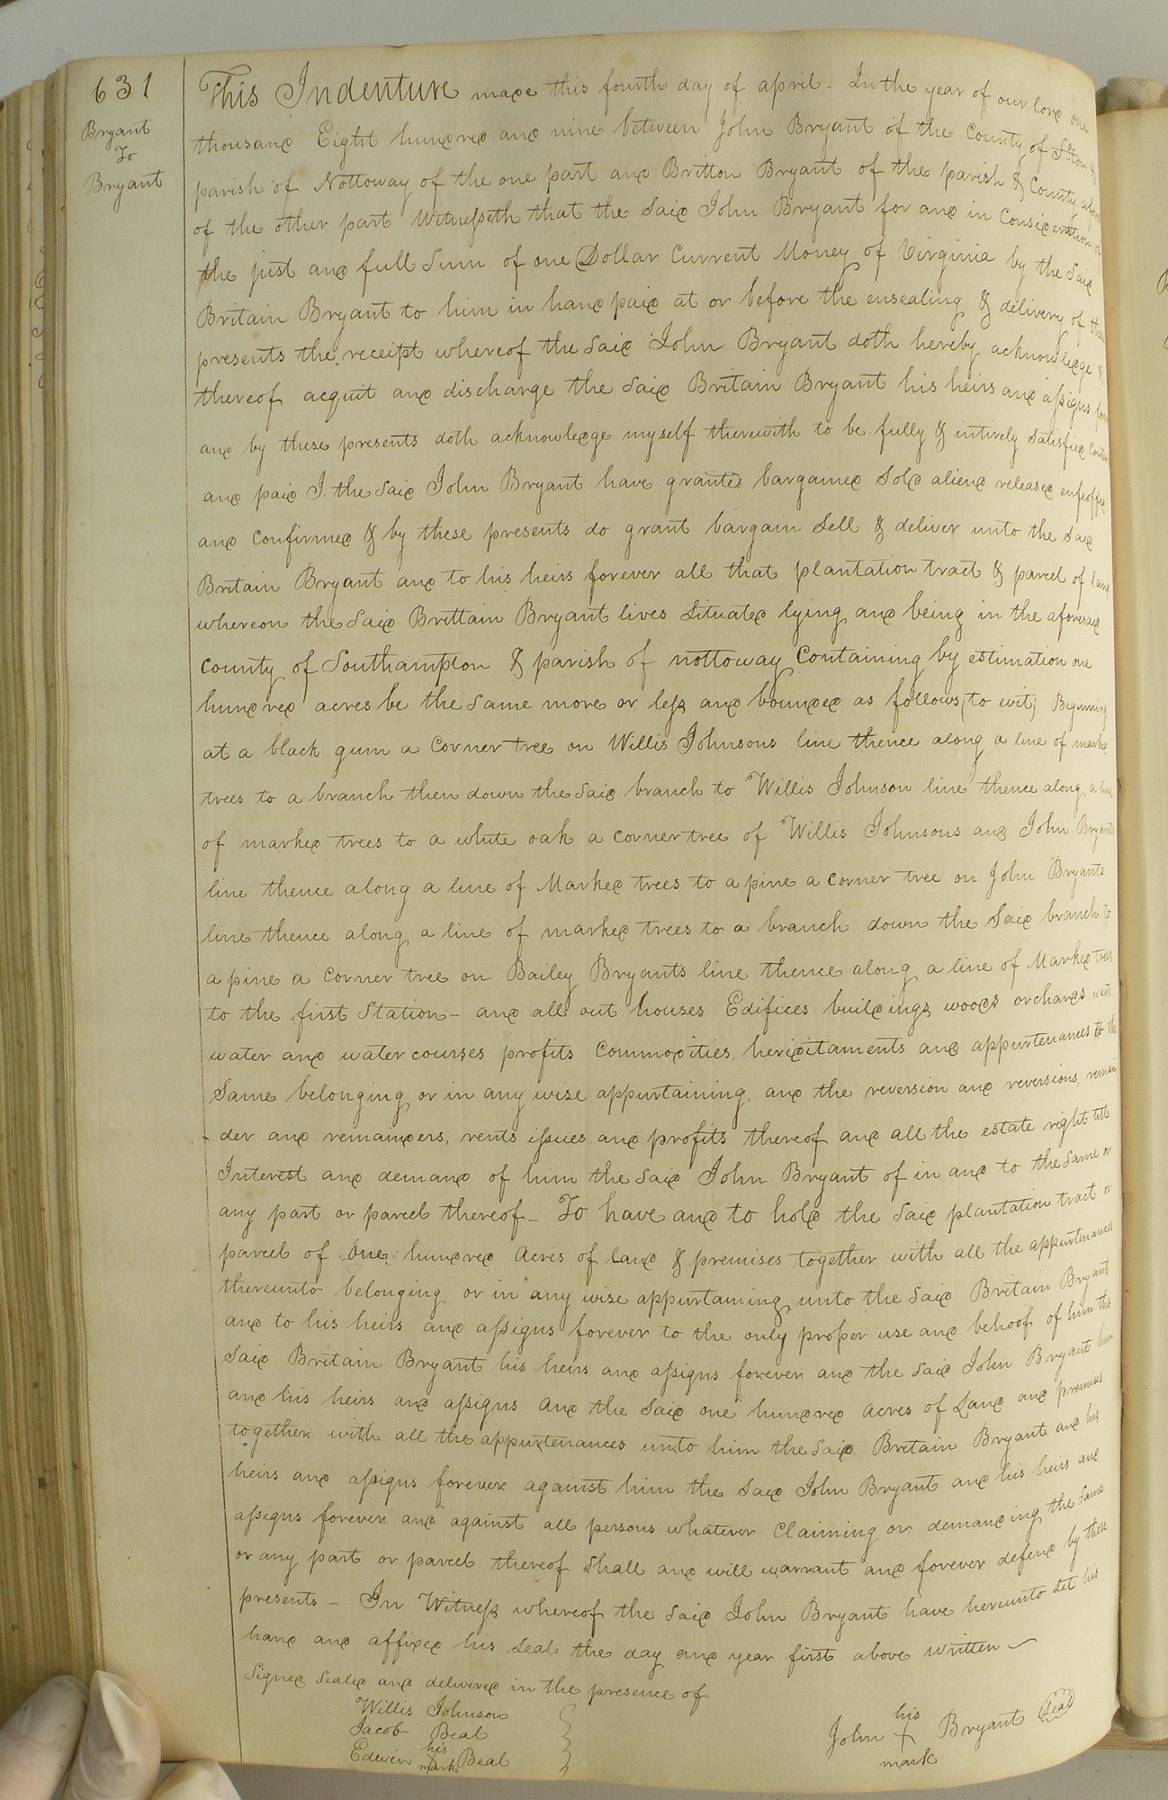 631
Bryant
To
Bryant
This Indenture made this fourth day of april. In the year of our lord one
thousand Eight hundred and nine between John Bryant of the County of
parish of Nottoway of the one part and Britton Bryant of the parish & County
of the other part Witnesseth that the Said John Bryant for and in Consideration of
the just and full Sum of one Dollar Current Money of Virginia by the Said
Britain Bryant to him in hand paid at or before the ensealing & delivery of
presents the receipt whereof the Said John Bryant doth hereby acknowledge &
thereof acquit and discharge the Said Britain Bryant his heirs and assigns
and by these presents doth acknowledge myself therewith to be fully & intirely Satisfied
and paid I. the Said John Bryant have granted bargained Sold aliend released enfeoffed
and Confirmed & by these presents do grant bargain Sell & deliver unto the Said
Britain Bryant and to his heirs forever all that plantation tract & parcel of land
whereon the Said Brittain Bryant lives Situated lying and being in the aforesaid
County of Southampton & parish of nottoway Containing by estimation one
hundred acres be the Same more or less and bounded as follows, to wit, Begining
at a black gum a Corner tree on Willis Johnsons line thence along a line of marked
trees to a branch then down the Said branch to Willis Johnson line thence along a line
of marked trees to a white oak a corner tree of Willis Johnsons and John Bryants
line thence along a line of Marked trees to a pine a corner tree on John Bryants
line thence along a line of marked trees to a branch down the Said branch to
a pine a corner tree on Bailey Bryants line thence along a line of Marked trees
to the first Station - and all out houses Edifices buildings woods orchards
water and water courses profits Commodities, hereditaments and appurtenances to the
Same belonging or in any wise appurtaining, and the reversion and reversions, remain
- der and remainders, rents issues and profits thereof and all the estate right title
Interest and demand of him the Said John Bryant of in and to the Same or
any part or parcel thereof - To have and to hold the Said plantation tract or
parcel of One hundred Acres of land & premises together with all the appurtenances
thereunto belonging or in any wise appurtaining unto the Said Britain Bryant
and to his heirs and assigns forever to the only proper use and behoof of him the
Said Britain Bryant his heirs and assigns forever and the Said John Bryant
and his heirs and assigns and the Said one hundred acres of Land and premises
together with all the appurtenances unto him the Said Britain Bryant and his
heirs and assigns forever against him the Said John Bryant and his heirs and
assigns forever and against all persons whatever Claiming or demanding the Same
or any part or parcel thereof Shall and will warrant and forever defend by these
presents - In Witness whereof the Said John Bryant have hereunto Set his
hand and affixed his Seal the day and year first above written
Signed Sealed and delivered in the presence of
Willis Johnson
Jacob Beal
Edwin his X mark Beal
John his X mark Bryant Seal